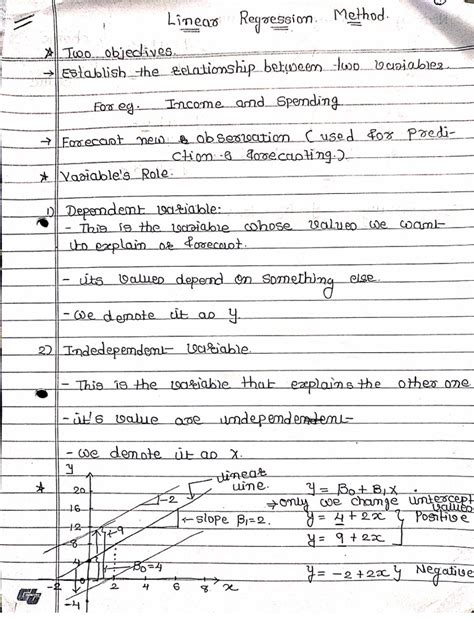 Linear Regression Method.
* Two objectives.
→ Establish the relationship between two variables.
For eg. Income and Spending
→ Forecast new & observation (used for Predi-
ction & forecasting.)
* Variable's Role.
1) Dependent variable:
- This is the variable whose values we want
to explain or forecast.
- its values depend on something else.
- we denote it as Y.
2) Indedependent variable.
- This is the variable that explains the other one
- it's value are undependendent
- we denote it as X.
* y
linear line.
20
16
12
8
4
0
-4
-2 2 4 6 8 x
-2
9
← slope B₁=2.
B₀=4
y = B₀ + B₁x.
→ only we change intercept values
y = 4 + 2x } Positive
y = 9 + 2x
y = -2 + 2x } Negative